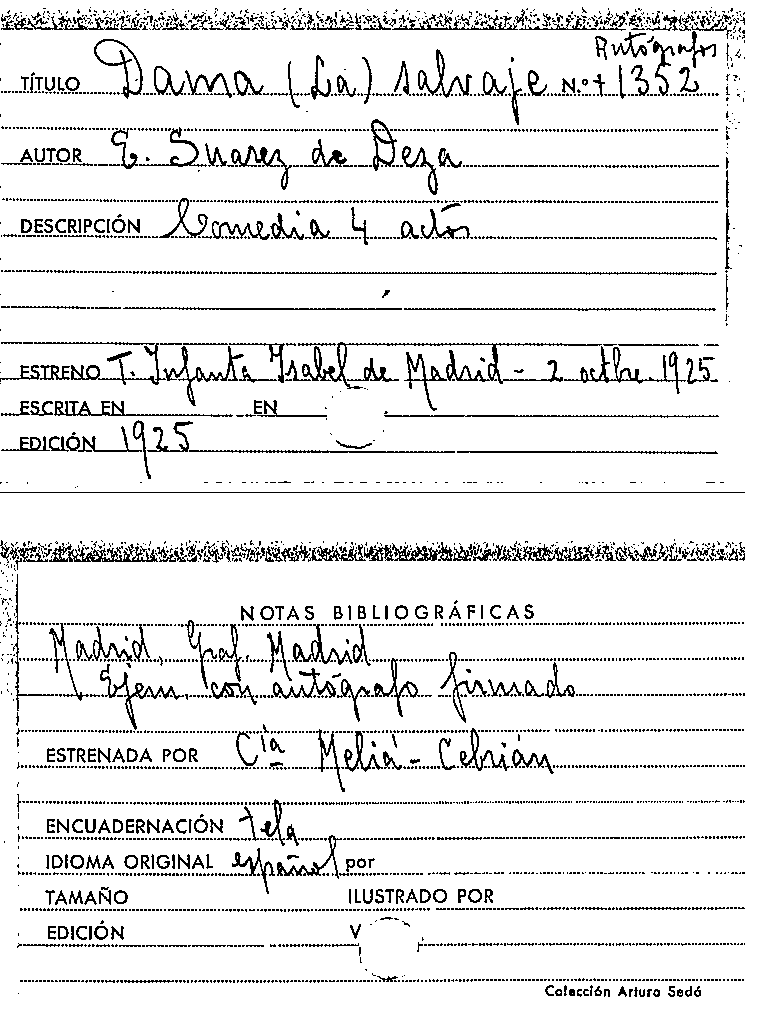 Autógrafos
TÍTULO Dama (La) salvaje N.º 1352
AUTOR E. Suarez de Deza
DESCRIPCIÓN Comedia 4 actos
ESTRENO T. Infanta Ysabel de Madrid - 2 octbre. 1925
ESCRITA EN EN
EDICIÓN 1925
NOTAS BIBLIOGRÁFICAS
Madrid, Graf. Madrid
Ejem. con autógrafo firmado
ESTRENADA POR Cía Meliá - Cebrián
ENCUADERNACIÓN tela
IDIOMA ORIGINAL español por
TAMAÑO ILUSTRADO POR
EDICIÓN V
Colección Arturo Sedó